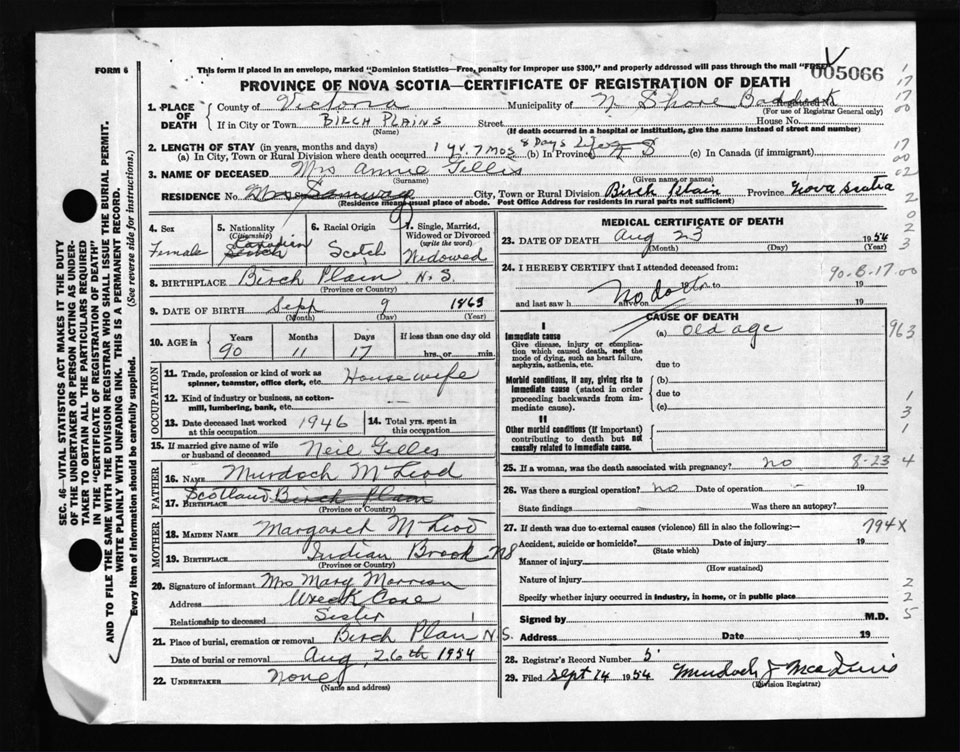 FORM 6
This form if placed in an envelope, marked "Dominion Statistics—Free, penalty for improper use $300," and properly addressed will pass through the mail "FREE"
005066
PROVINCE OF NOVA SCOTIA—CERTIFICATE OF REGISTRATION OF DEATH
1. PLACE OF DEATH
County of Victoria Municipality of N Shore Baddeck
Registered No.
(For use of Registrar General only)
If in City or Town BIRCH PLAINS Street House No.
(Name) (If death occurred in a hospital or institution, give the name instead of street and number)
2. LENGTH OF STAY (in years, months and days)
(a) In City, Town or Rural Division where death occurred 1 yr. 7 mos 8 Days (b) In Province Life N S (c) In Canada (if immigrant)
3. NAME OF DECEASED Mrs Annie Gillis
(Surname) (Given name or names)
RESIDENCE No. City, Town or Rural Division Birch Plain Province Nova Scotia
(Residence means usual place of abode. Post Office Address for residents in rural parts not sufficient)
4. Sex
Female
5. Nationality
(Citizenship)
Canadian
Scotch
6. Racial Origin
Scotch
7. Single, Married, Widowed or Divorced
(write the word)
Widowed
8. BIRTHPLACE Birch Plain N. S.
(Province or Country)
9. DATE OF BIRTH Sept 9 1863
(Month) (Day) (Year)
10. AGE in
Years Months Days If less than one day
90 11 17 hrs. or min.
OCCUPATION
11. Trade, profession or kind of work as spinner, teamster, office clerk, etc. Housewife
12. Kind of industry or business, as cotton-mill, lumbering, bank, etc. —
13. Date deceased last worked at this occupation 1946
14. Total yrs. spent in this occupation
15. If married give name of wife or husband of deceased Neil Gillis
FATHER
16. NAME Murdoch McLeod
17. BIRTHPLACE Scotland Birch Plain
(Province or Country)
MOTHER
18. MAIDEN NAME Margaret McLeod
19. BIRTHPLACE Indian Brook NS
(Province or Country)
20. Signature of informant Mrs Mary Morrison
Address Wreck Cove
Relationship to deceased Sister
21. Place of burial, cremation or removal Birch Plain N. S.
Date of burial or removal Aug. 26th 1954
22. UNDERTAKER None
(Name and address)
MEDICAL CERTIFICATE OF DEATH
23. DATE OF DEATH Aug 23 1954
(Month) (Day) (Year)
24. I HEREBY CERTIFY that I attended deceased from:
90-8-17-00
to 19
No doctor
and last saw h alive on 19
CAUSE OF DEATH
I
Immediate cause
Give disease, injury or complication which caused death, not the mode of dying, such as heart failure, asphyxia, asthenia, etc.
(a) old age
due to
Morbid conditions, if any, giving rise to immediate cause (stated in order proceeding backwards from immediate cause).
(b)
due to
(c)
II
Other morbid conditions (if important) contributing to death but not causally related to immediate cause.
25. If a woman, was the death associated with pregnancy? no 8-23
26. Was there a surgical operation? no Date of operation - 19
State findings Was there an autopsy?
27. If death was due to external causes (violence) fill in also the following:—
794X
Accident, suicide or homicide? Date of injury 19
(State which)
Manner of injury
(How sustained)
Nature of injury
Specify whether injury occurred in industry, in home, or in public place
Signed by M.D.
Address Date 19
28. Registrar's Record Number 5
29. Filed Sept 14 1954
(Division Registrar)
1
17
17
00
17
00
02
2
0
2
3
963
1
3
1
4
2
2
5
SEC. 46—VITAL STATISTICS ACT MAKES IT THE DUTY
OF THE UNDERTAKER OR PERSON ACTING AS UNDER-
TAKER TO OBTAIN ALL THE PARTICULARS REQUIRED
IN THE "CERTIFICATE OF REGISTRATION OF DEATH"
AND TO FILE THE SAME WITH THE DIVISION REGISTRAR WHO SHALL ISSUE THE BURIAL PERMIT.
WRITE PLAINLY WITH UNFADING INK. THIS IS A PERMANENT RECORD.
Every item of information should be carefully supplied. (See reverse side for instructions.)